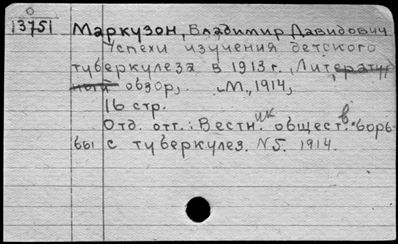 0
13751 Маркузон, Владимир Давидович
Успехи изучения детского
туберкулеза в 1913 г. Литератур
ный обзор. М., 1914,
16 стр.
ик в
Отд. отт.: Вестн. общест. борь-
бы с туберкулез. N5. 1914.